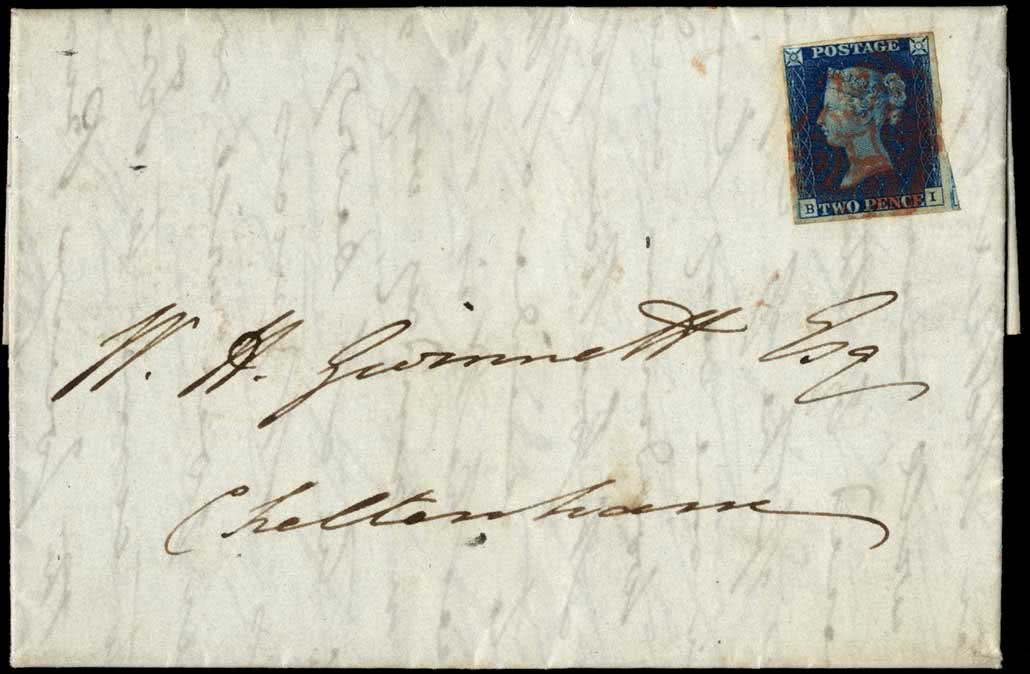 POSTAGE
B TWO PENCE I
W. H. Gwinnett Esq
Cheltenham